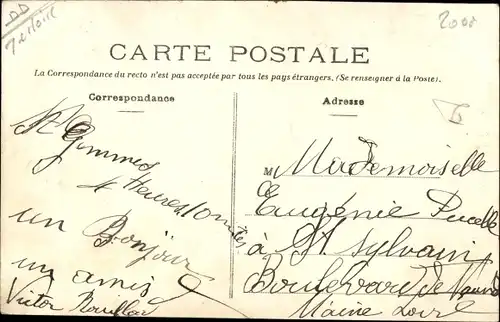 2000
CARTE POSTALE
La Correspondance du recto n'est pas acceptée par tous les pays étrangers. (Se renseigner à la Poste).
Correspondance
St Gemmes
4 Heures 10 mtes
un Bonjour
un amis
Victor
Adresse
Mademoiselle
Eugénie Pucelle
à St Sylvain
Boulevard de
Maine Loire